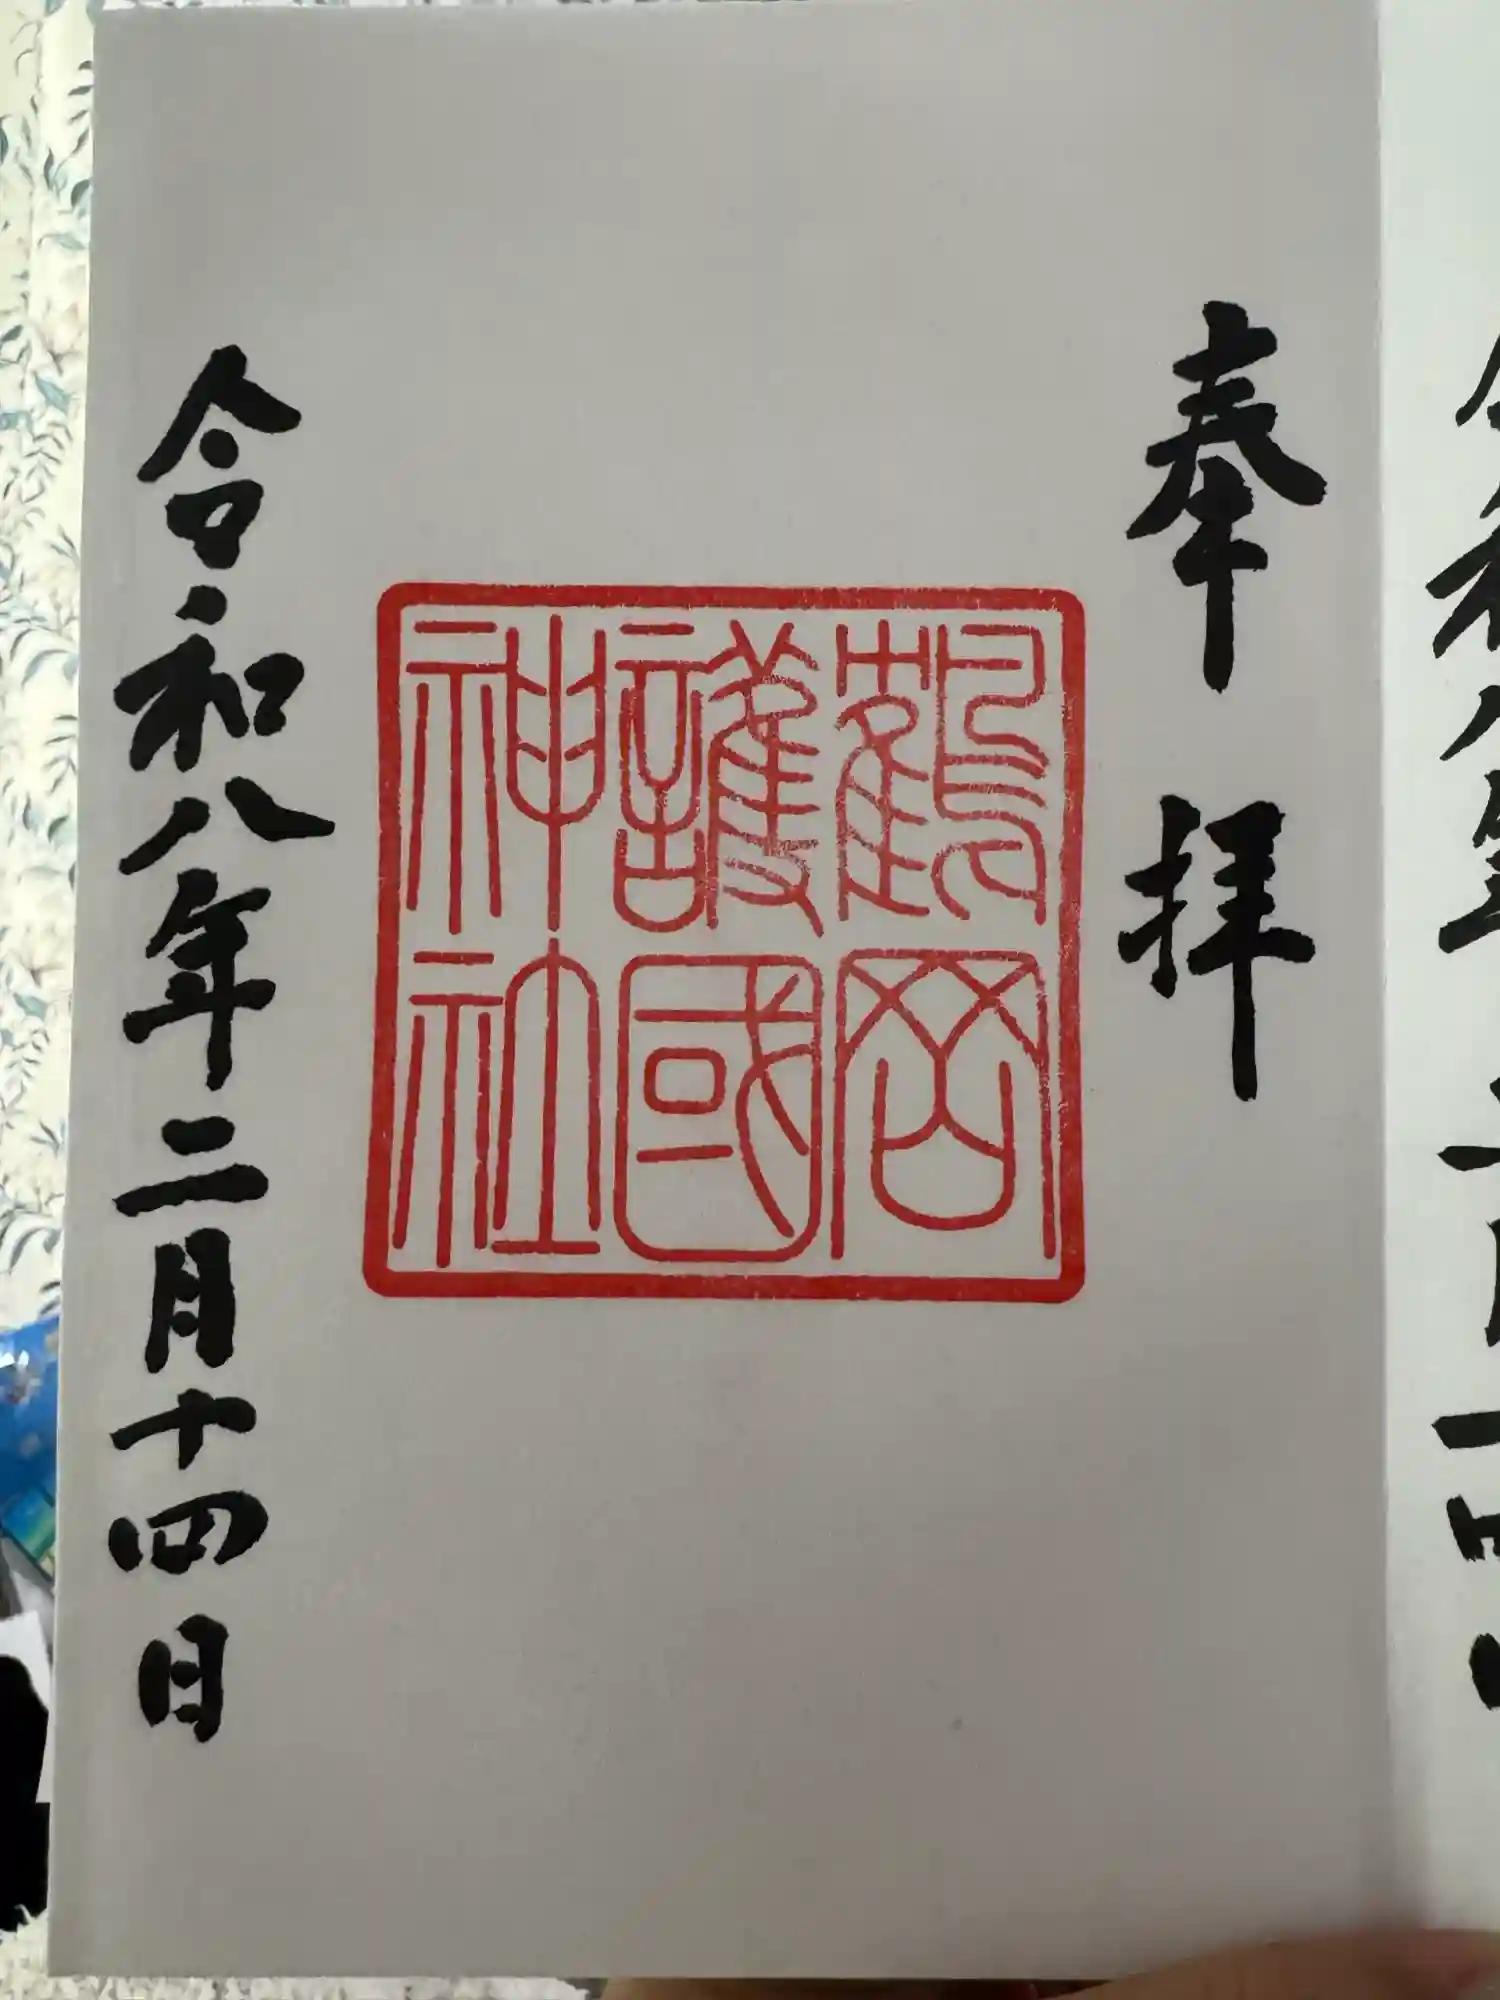 奉拝
鶴岡
護國
神社
令和八年二月十四日